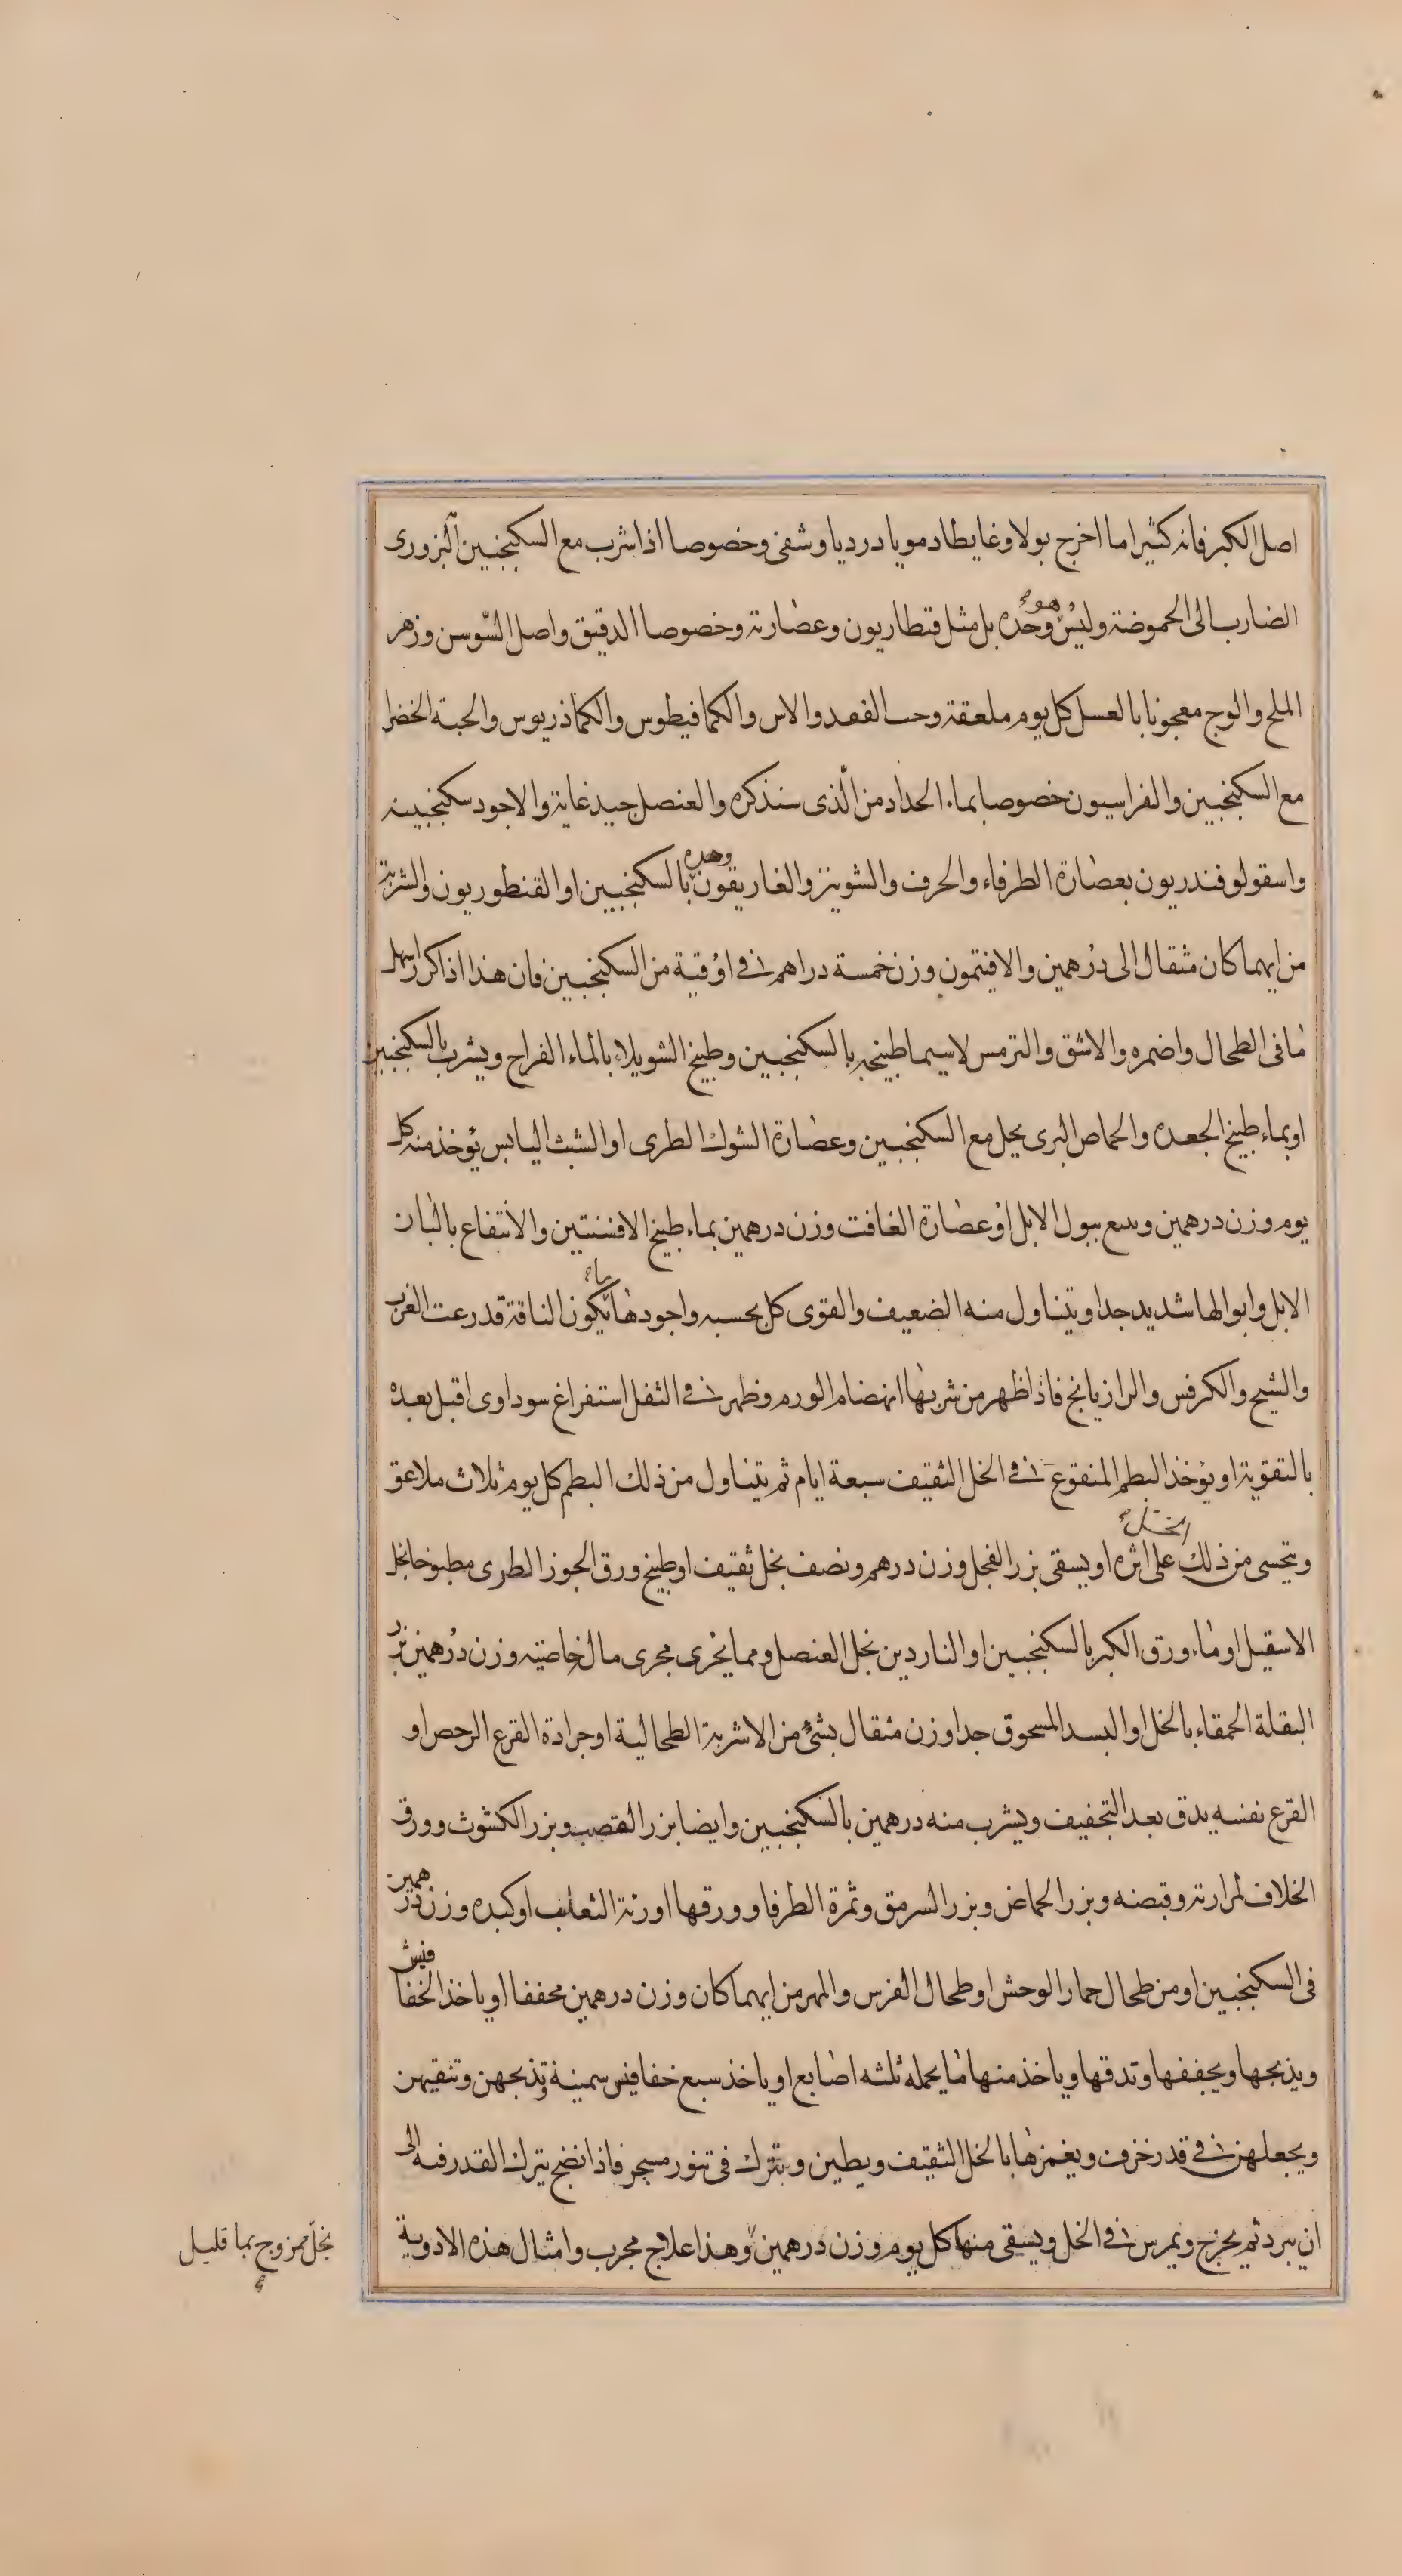 اصل الكبر فانه كثيرا ما اخرج بولا وغايطا دمويا درديا وشفى وخصوصا اذا شرب مع السكنجبين البزورى
الضارب الى الحموضة وليس هو وحده بل مثل قنطاريون وعصارته وخصوصا الدقيق واصل السّوسن وزهر
الملح والوج معجونا بالعسل كل يوم ملعقة وحب الفقد والاس والكمافيطوس والكماذريوس والحبة الخضرا
مع السكنجبين والفراسيون خصوصا بماء الحداد من الّذى سنذكره والعنصل جيد غاية والاجود سكنجبينه
واسقولوفندريون بعصارة الطرفاء والحرف والشونيز والغاريقون وحده بالسكنجبين او القنطوريون والشربة
من ايهما كان مثقال الى درهمين والافتمون وزن خمسة دراهم فى اوقية من السكنجبين فان هذا اذا كرر اسهل
ما فى الطحال واضمره والاشق والترمس لاسيما طبيخه بالسكنجبين وطبيخ الشويلاء بالماء القراح ويشرب بالسكنجبين
او بماء طبيخ الجعده والحماض البرى يحل مع السكنجبين وعصارة الشوك الطرى او الشبث اليابس يؤخذ منه كل
يوم وزن درهمين ببول الابل او عصارة الغافت وزن درهمين بماء طبيخ الافسنتين والانتفاع بالبان
الابل وابوالها شديد جدا ويتناول منه الضعيف والقوى كل بحسبه واجودها ما يكون الناقة قد رعت الغرب
والشيح والكرفس والرازيانج فاذا ظهر من شربها انهضام الورم وظهر فى الثفل استفراغ سوداوى اقبل بعده
بالتقوية او يؤخذ البطم المنقوع فى الخل الثقيف سبعة ايام ثم يتناول من ذلك البطم كل يوم ثلاث ملاعق
ويتحسى من ذلك الخل على اثره او يسقى بزر الفجل وزن درهم ونصف بخل ثقيف او طبيخ ورق الجوز الطرى مطبوخا بخل
الاسقيل او ماء ورق الكبر بالسكنجبين او الناردين بخل العنصل ومما يجرى مجرى ما له خاصيته وزن درهمين بزر
البقلة الحمقاء بالخل او البسد المسحوق جدا وزن مثقال بشئ من الاشربة الطحالية او جرادة القرع الرخص او
القرع نفسه يدق بعد التجفيف ويشرب منه درهمين بالسكنجبين وايضا بزر القصب وبزر الكشوث وورق
الخلاف لمرارته وقبضه وبزر الحماض وبزر السرمق وثمرة الطرفا وورقها او رئة الثعلب او كبده وزن درهمين
فى السكنجبين او من طحال حمار الوحش او طحال الفرس والمهر من ايهما كان وزن درهمين مجففا او ياخذ الخفافيش
ويذبحها ويجففها وتدقها وياخذ منها ما يحمله ثلثه اصابع او ياخذ سبع خفافيش سمينة وتذبحهن وتنقيهن
ويجعلهن فى قدر خزف ويغمرها بالخل الثقيف ويطين ويترك فى تنور مسجر فاذا نضج يترك القدر فيه الى
ان يبرد ثم يخرج ويمرس فى الخل ويسقى منها كل يوم وزن درهمين وهذا علاج مجرب وامثال هذه الادوية
بخل ممزوج بما قليل